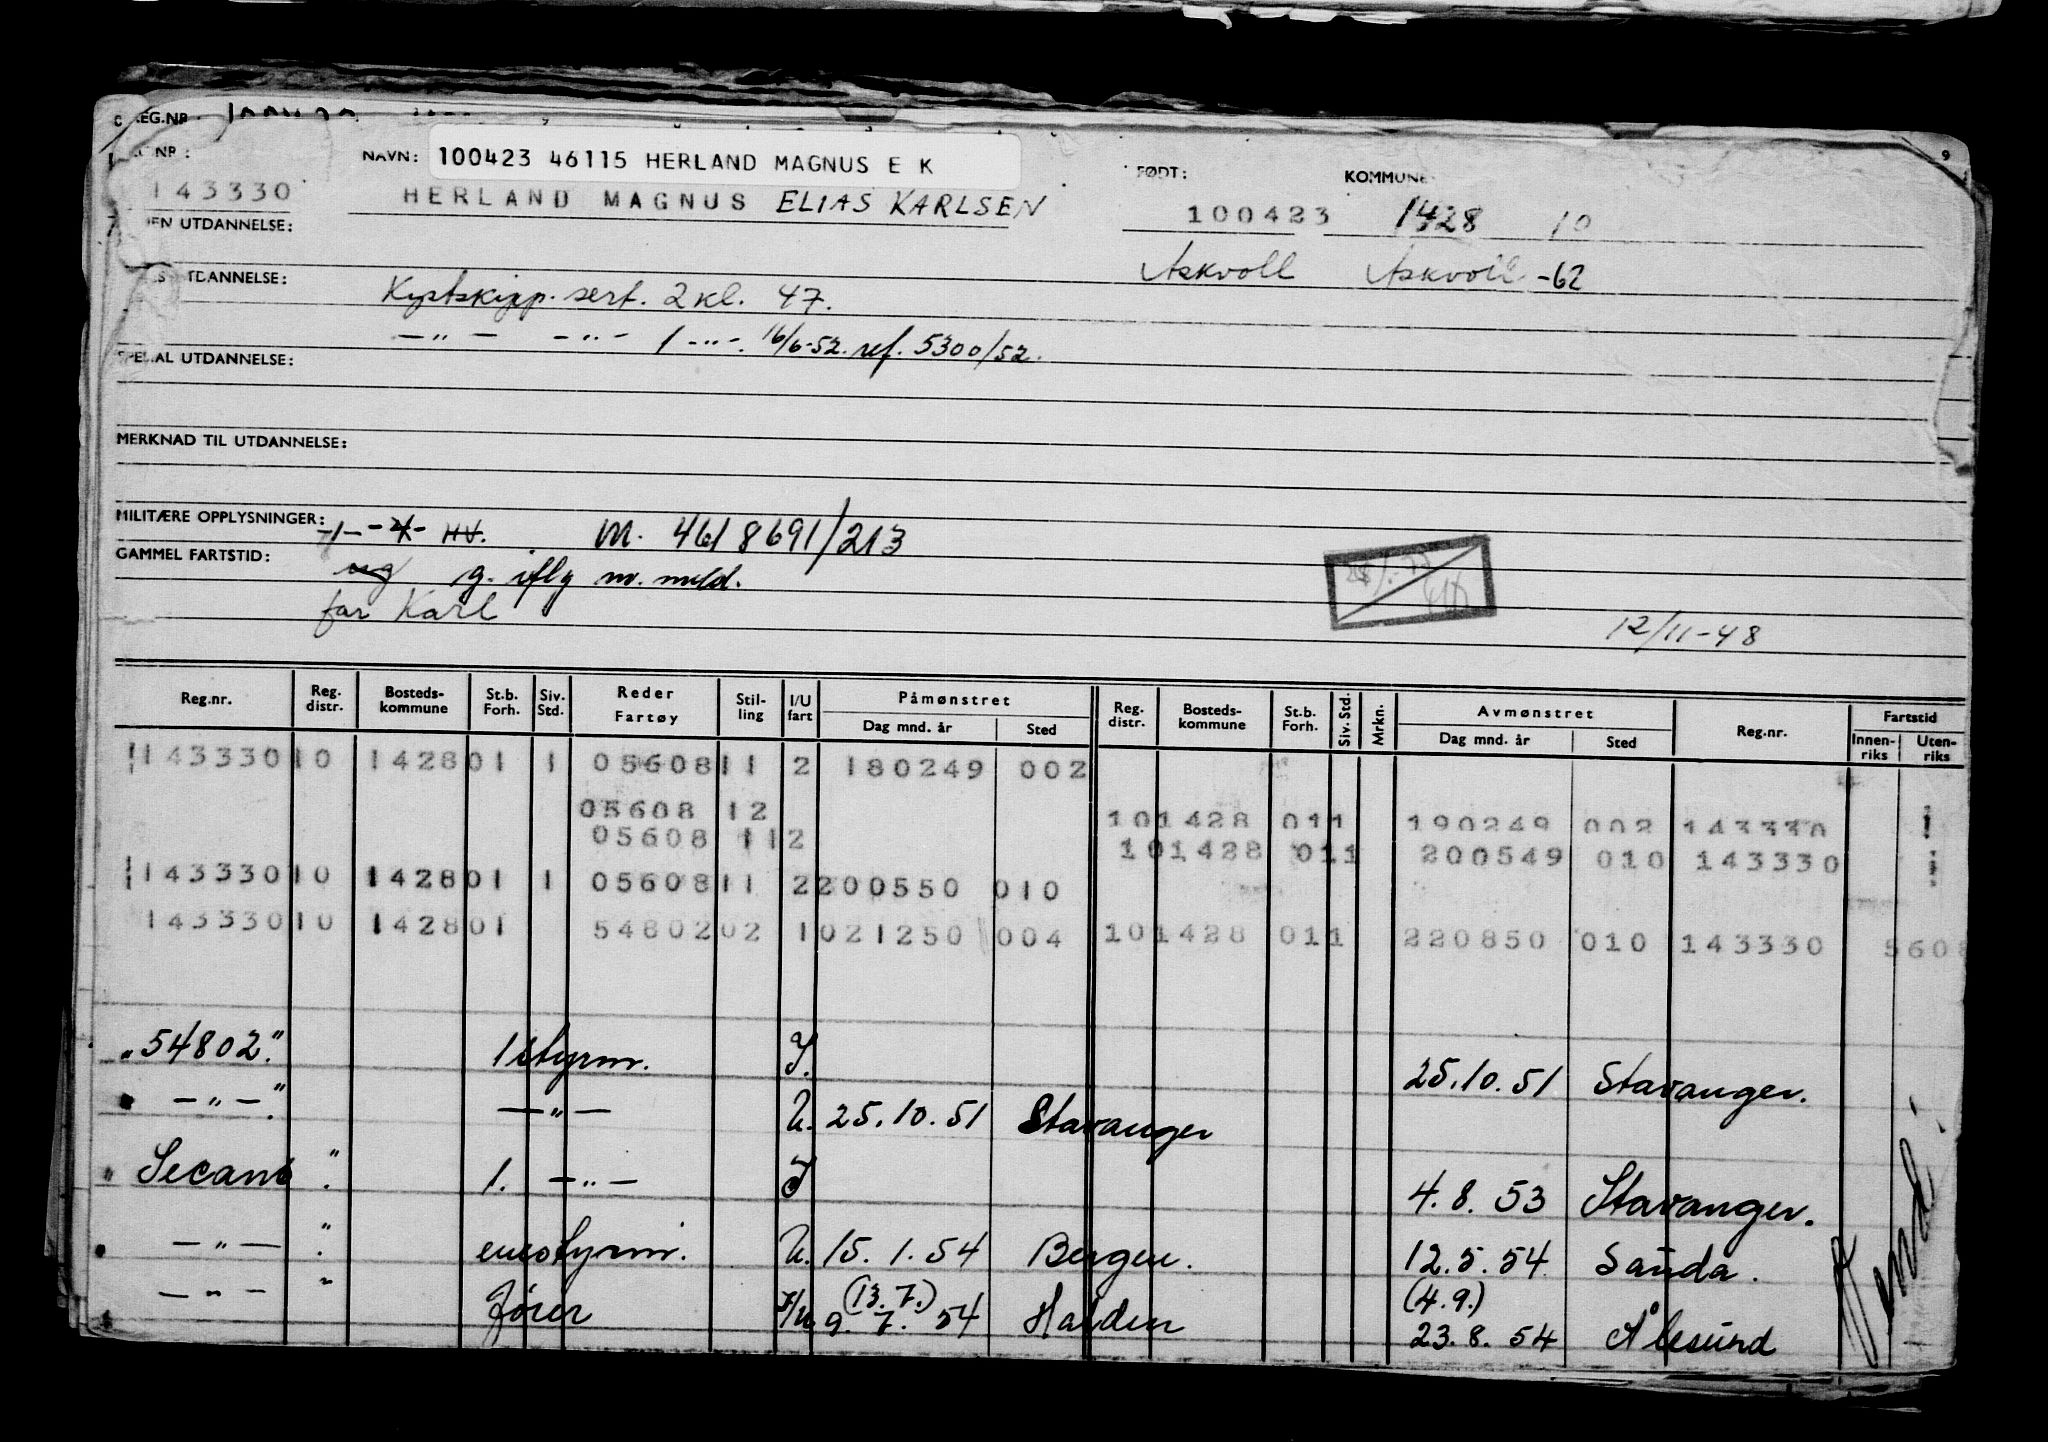 REG.NR
NR:
NAVN: 100423 46115 HERLAND MAGNUS E K
FØDT:
KOMMUNE
9
143330
HERLAND MAGNUS ELIAS KARLSEN
100423
1428 10
UTDANNELSE:
Askvoll Askvoll -62
UTDANNELSE:
Kystskipp. sert. 2 kl. 47.
—"— —"— 1 —"—. 16/6-52. ref. 5300/52.
SPESIAL UTDANNELSE:
MERKNAD TIL UTDANNELSE:
MILITÆRE OPPLYSNINGER:
HV. M. 4618691/213
GAMMEL FARTSTID:
g. iflg m. meld.
far Karl
12/11-48
Reg.nr. Reg. distr. Bosteds-kommune St.b. Forh. Siv. Std. Reder Fartøy Stil-ling I/U fart Påmønstret Dag mnd. år Sted Reg. distr. Bosteds-kommune St.b. Forh. Siv. Std. Mrkn. Avmønstret Dag mnd. år Sted Reg.nr. Fartstid Innen-riks Uten-riks
143330 10 1428 01 1 05608 11 2 180249 002
05608 12 10 1428 01 1 190249 002 143330
05608 11 2 10 1428 01 1 200549 010 143330
143330 10 1428 01 1 05608 11 2 200550 010
143330 10 1428 01 54802 02 1 021250 004 10 1428 01 1 220850 010 143330 5608
"54802." 1 styrm. I. 25.10.51 Stavanger.
—"—." —"— U. 25.10.51 Stavanger
" Secano". 1. —"— I 4.8.53 Stavanger.
—"—". enestyrm. U. 15.1.54 Bergen. 12.5.54 Sauda.
—"—" fører I/U (13.7.) 9.7.54 Halden (4.9.) 23.8.54 Ålesund